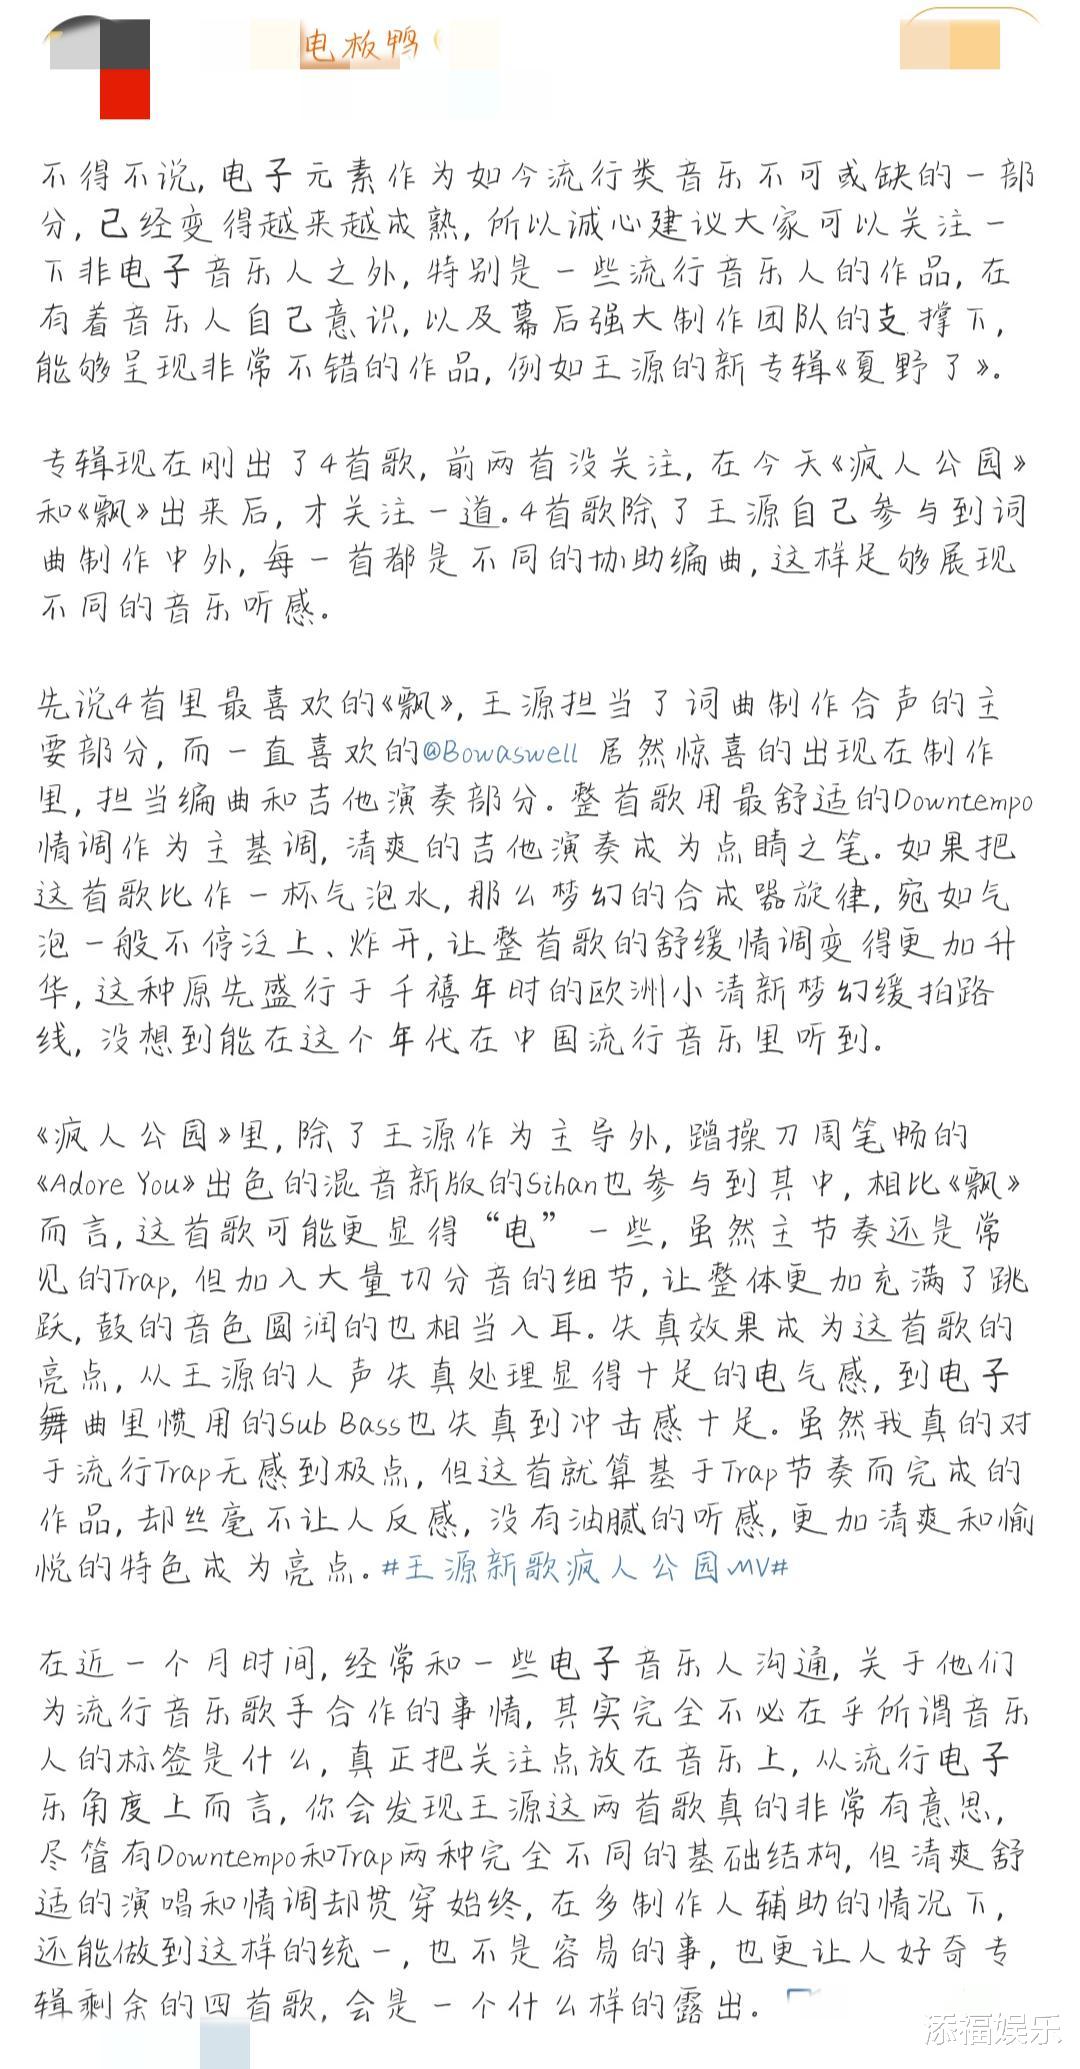 电板鸭
不得不说, 电子元素作为如今流行类音乐不可或缺的一部
分, 已经变得越来越成熟, 所以诚心建议大家可以关注一
下非电子音乐人之外, 特别是一些流行音乐人的作品, 在
有着音乐人自己意识, 以及幕后强大制作团队的支撑下,
能够呈现非常不错的作品, 例如王源的新专辑《夏野了》。
专辑现在刚出了4首歌, 前两首没关注, 在今天《疯人公园》
和《飘》出来后, 才关注一道。4首歌除了王源自己参与到词
曲制作中外, 每一首都是不同的协助编曲, 这样足够展现
不同的音乐听感。
先说4首里最喜欢的《飘》, 王源担当了词曲制作合声的主
要部分, 而一直喜欢的@Bowaswell 居然惊喜的出现在制作
里, 担当编曲和吉他演奏部分。整首歌用最舒适的Downtempo
情调作为主基调, 清爽的吉他演奏成为点睛之笔。如果把
这首歌比作一杯气泡水, 那么梦幻的合成器旋律, 宛如气
泡一般不停泛上、炸开, 让整首歌的舒缓情调变得更加升
华, 这种原先盛行于千禧年时的欧洲小清新梦幻缓拍路
线, 没想到能在这个年代在中国流行音乐里听到。
《疯人公园》里, 除了王源作为主导外, 蹭操刀周笔畅的
《Adore You》出色的混音新版的Sihan也参与到其中, 相比《飘》
而言, 这首歌可能更显得“电”一些, 虽然主节奏还是常
见的Trap, 但加入大量切分音的细节, 让整体更加充满了跳
跃, 鼓的音色圆润的也相当入耳。失真效果成为这首歌的
亮点, 从王源的人声失真处理显得十足的电气感, 到电子
舞曲里惯用的Sub Bass也失真到冲击感十足。虽然我真的对
于流行Trap无感到极点, 但这首就算基于Trap节奏而完成的
作品, 却丝毫不让人反感, 没有油腻的听感, 更加清爽和愉
悦的特色成为亮点。#王源新歌疯人公园MV#
在近一个月时间, 经常和一些电子音乐人沟通, 关于他们
为流行音乐歌手合作的事情, 其实完全不必在乎所谓音乐
人的标签是什么, 真正把关注点放在音乐上, 从流行电子
乐角度上而言, 你会发现王源这两首歌真的非常有意思,
尽管有Downtempo和Trap两种完全不同的基础结构, 但清爽舒
适的演唱和情调却贯穿始终, 在多制作人辅助的情况下,
还能做到这样的统一, 也不是容易的事, 也更让人好奇专
辑剩余的四首歌, 会是一个什么样的露出。
添福娱乐